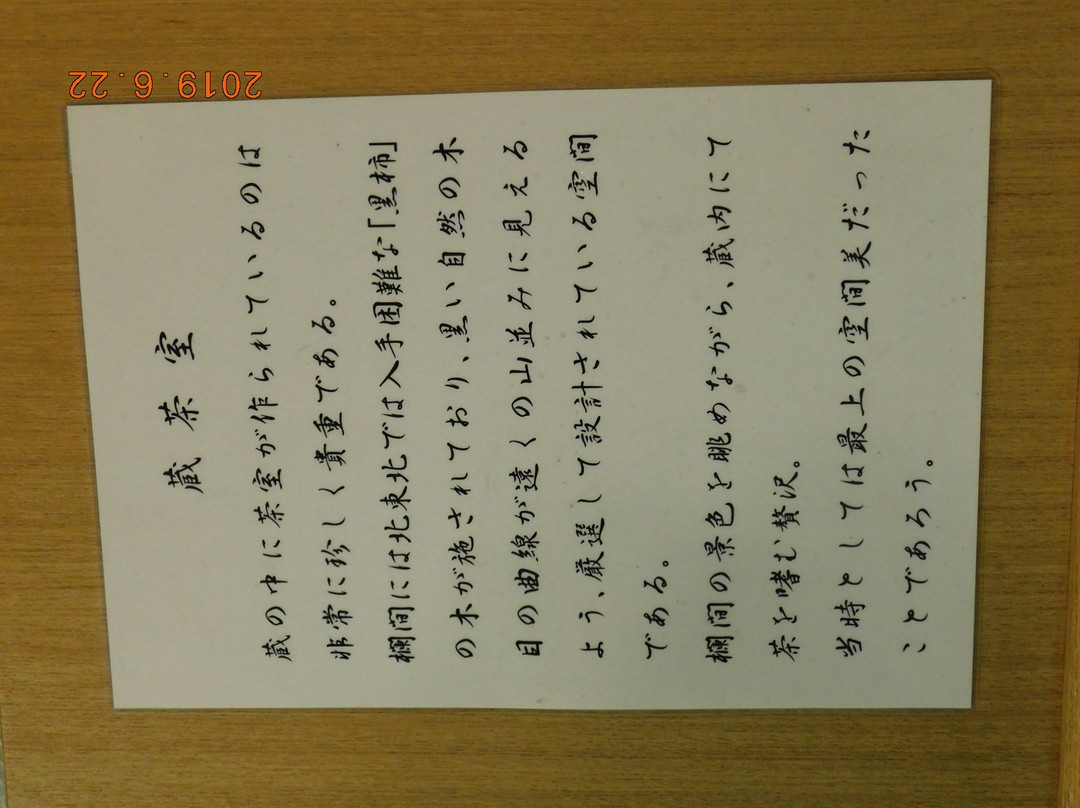 蔵茶室
蔵の中に茶室が作られているのは
非常に珍しく貴重である。
欄間には北東北では入手困難な「黒柿」
の木が施されており、黒い自然の木
目の曲線が遠くの山並みに見える
よう、厳選して設計されている空間
である。
欄間の景色を眺めながら、蔵内にて
茶を嗜む贅沢。
当時としては最上の空間美だった
ことであろう。
2019.6.22